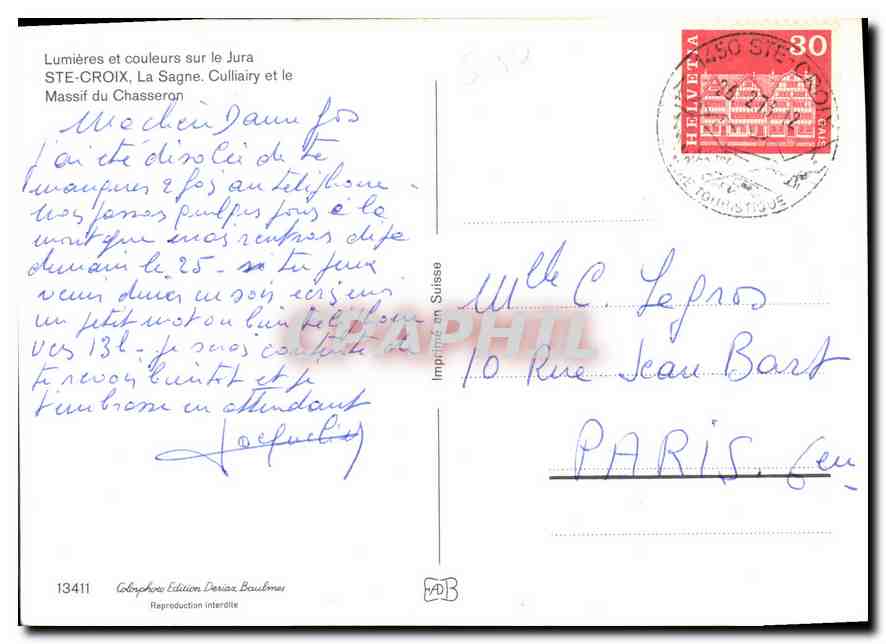 Lumières et couleurs sur le Jura
STE-CROIX, La Sagne. Culliairy et le
Massif du Chasseron
Ma chère
J'ai été désolée de te
manquer 2 fois au téléphone -
nous passons quelques jours à la
mais rentrons
demain le 25 - si tu peux
venir un soir
un petit mot ou bien téléphone
vers 13h - je serai contente de
te revoir bientôt et je
t'embrasse en attendant
Jacqueline
13411
Colorphoto Edition Deriaz Baulmes
Reproduction interdite
Imprimé en Suisse
HELVETIA
30
GAIS
1450 STE-CROIX
TOURISTIQUE
Mlle C. Legros
10 Rue Jean Bart
PARIS. 6em
CPAPHIL